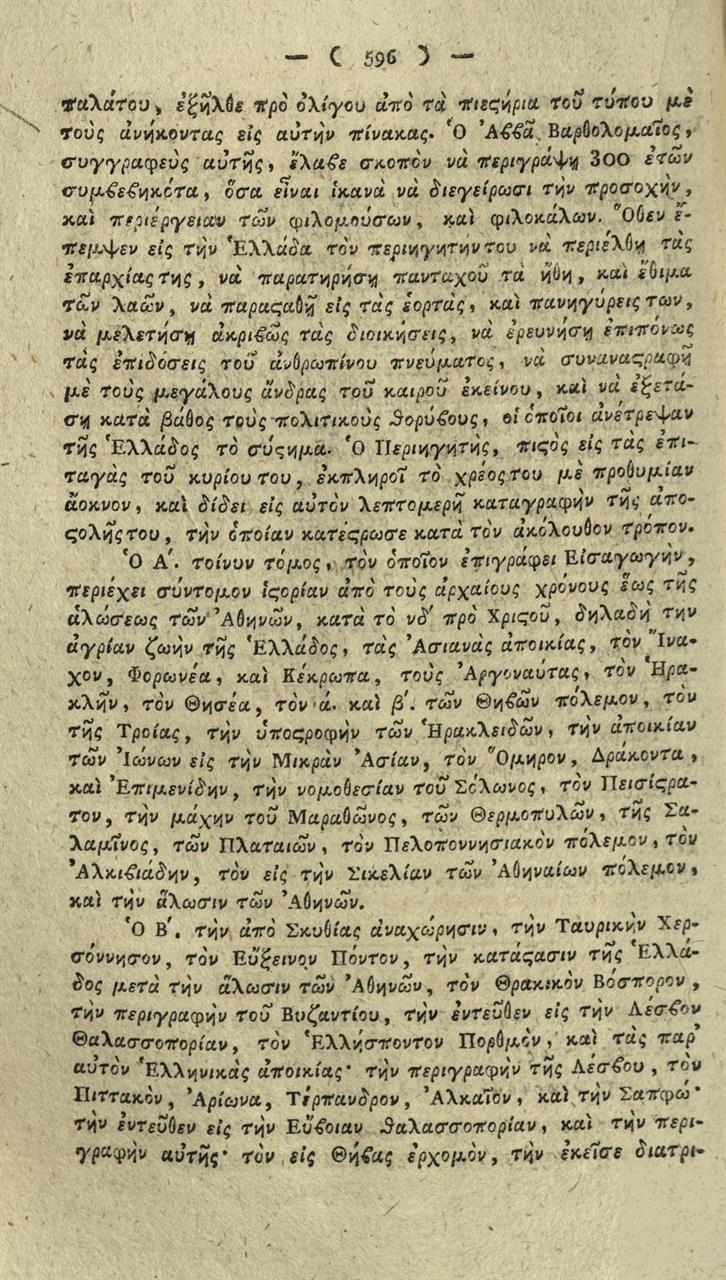 — ( 596 ) —
παλάτου, ἐξῆλθε πρὸ ὀλίγου ἀπὸ τὰ πιεϛήρια τοῦ τύπου μὲ
τοὺς ἀνήκοντας εἰς αὐτὴν πίνακας. Ὁ Ἀϐϐᾶ Βαρθολομαῖος,
συγγραφεὺς αὐτῆς, ἔλαϐε σκοπὸν νὰ περιγράψῃ 300 ἐτῶν
συμϐεϐηκότα, ὅσα εἶναι ἱκανὰ νὰ διεγείρωσι τὴν προσοχὴν,
καὶ περιέργειαν τῶν φιλομούσων, καὶ φιλοκάλων. Ὅθεν ἔ-
πεμψεν εἰς τὴν Ἑλλάδα τὸν περιηγητήν του νὰ περιέλθῃ τὰς
ἐπαρχίας της, νὰ παρατηρήσῃ πανταχοῦ τὰ ἤθη, καὶ ἔθιμα
τῶν λαῶν, νὰ παραϛαθῇ εἰς τὰς ἑορτὰς, καὶ πανηγύρεις των,
νὰ μελετήσῃ ἀκριϐῶς τὰς διοικήσεις, νὰ ἐρευνήσῃ ἐπιπόνως
τὰς ἐπιδόσεις τοῦ ἀνθρωπίνου πνεύματος, νὰ συναναϛραφῇ
μὲ τοὺς μεγάλους ἄνδρας τοῦ καιροῦ ἐκείνου, καὶ νὰ ἐξετά-
σῃ κατὰ βάθος τοὺς πολιτικοὺς ϑορύϐους, οἱ ὁποῖοι ἀνέτρεψαν
τῆς Ἑλλάδος τὸ σύϛημα. Ὁ Περιηγητὴς, πιϛὸς εἰς τὰς ἐπι-
ταγὰς τοῦ κυρίου του, ἐκπληροῖ τὸ χρέος του μὲ προθυμίαν
ἄοκνον, καὶ δίδει εἰς αὐτὸν λεπτομερῆ καταγραφὴν τῆς ἀπο-
ϛολῆς του, τὴν ὁποίαν κατέϛρωσε κατὰ τὸν ἀκόλουθον τρόπον.
Ὁ Α΄. τοίνυν τόμος, τὸν ὁποῖον ἐπιγράφει Εἰσαγωγὴν,
περιέχει σύντομον ἱϛορίαν ἀπὸ τοὺς ἀρχαίους χρόνους ἕως τῆς
ἁλώσεως τῶν Ἀθηνῶν, κατὰ τὸ νδ΄ πρὸ Χριϛοῦ, δηλαδὴ τὴν
ἀγρίαν ζωὴν τῆς Ἑλλάδος, τὰς Ἀσιανὰς ἀποικίας, τὸν Ἴνα-
χον, Φορωνέα, καὶ Κέκρωπα, τοὺς Ἀργοναύτας, τὸν Ἡρα-
κλῆν, τὸν Θησέα, τὸν ά. καὶ β΄. τῶν Θηϐῶν πόλεμον, τὸν
τῆς Τροίας, τὴν ὑποϛροφὴν τῶν Ἡρακλειδῶν, τὴν ἀποικίαν
τῶν Ἰώνων εἰς τὴν Μικρὰν Ἀσίαν, τὸν Ὅμηρον, Δράκοντα,
καὶ Ἐπιμενίδην, τὴν νομοθεσίαν τοῦ Σόλωνος, τὸν Πεισίϛρα-
τον, τὴν μάχην τοῦ Μαραθῶνος, τῶν Θερμοπυλῶν, τῆς Σα-
λαμῖνος, τῶν Πλαταιῶν, τὸν Πελοποννησιακὸν πόλεμον, τὸν
Ἀλκιϐιάδην, τὸν εἰς τὴν Σικελίαν τῶν Ἀθηναίων πόλεμον,
καὶ τὴν ἅλωσιν τῶν Ἀθηνῶν.
Ὁ Β΄. τὴν ἀπὸ Σκυθίας ἀναχώρησιν, τὴν Ταυρικὴν Χερ-
σόννησον, τὸν Εὔξεινον Πόντον, τὴν κατάϛασιν τῆς Ἑλλά-
δος μετὰ τὴν ἅλωσιν τῶν Ἀθηνῶν, τὸν Θρακικὸν Βόσπορον,
τὴν περιγραφὴν τοῦ Βυζαντίου, τὴν ἐντεῦθεν εἰς τὴν Λέσϐον
Θαλασσοπορίαν, τὸν Ἑλλήσποντον Πορθμὸν, καὶ τὰς παρ᾽
αὐτὸν Ἑλληνικὰς ἀποικίας· τὴν περιγραφὴν τῆς Λέσϐου, τὸν
Πιττακὸν, Ἀρίωνα, Τέρπανδρον, Ἀλκαῖον, καὶ τὴν Σαπφώ·
τὴν ἐντεῦθεν εἰς τὴν Εὔϐοιαν ϑαλασσοπορίαν, καὶ τὴν περι-
γραφὴν αὐτῆς· τὸν εἰς Θήϐας ἐρχομὸν, τὴν ἐκεῖσε διατρι-